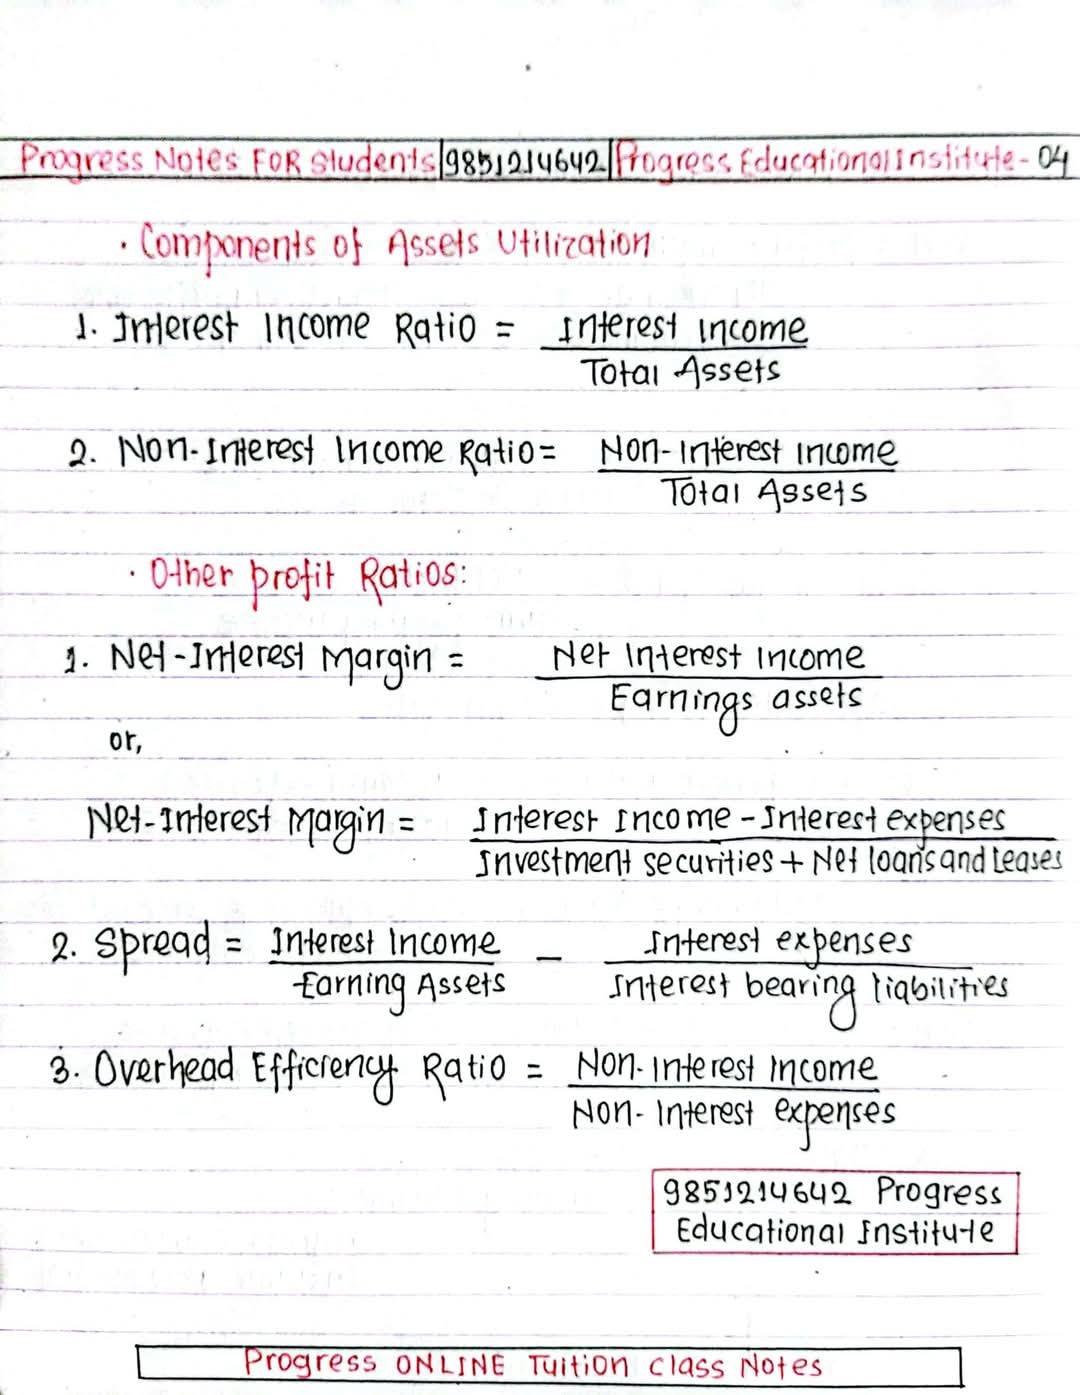 Progress Notes FOR Students|9851214642|Progress Educational Institute-04
· Components of Assets Utilization
1. Interest Income Ratio = Interest income
Total Assets
2. Non-Interest Income Ratio = Non-interest income
Total Assets
· Other profit Ratios:
1. Net-Interest Margin = Net Interest income
Earnings assets
or,
Net-Interest Margin = Interest Income - Interest expenses
Investment securities + Net loans and Leases
2. Spread = Interest Income - Interest expenses
Earning Assets Interest bearing liabilities
3. Overhead Efficiency Ratio = Non-interest Income
Non-Interest expenses
9851214642 Progress
Educational Institute
Progress ONLINE Tuition class Notes